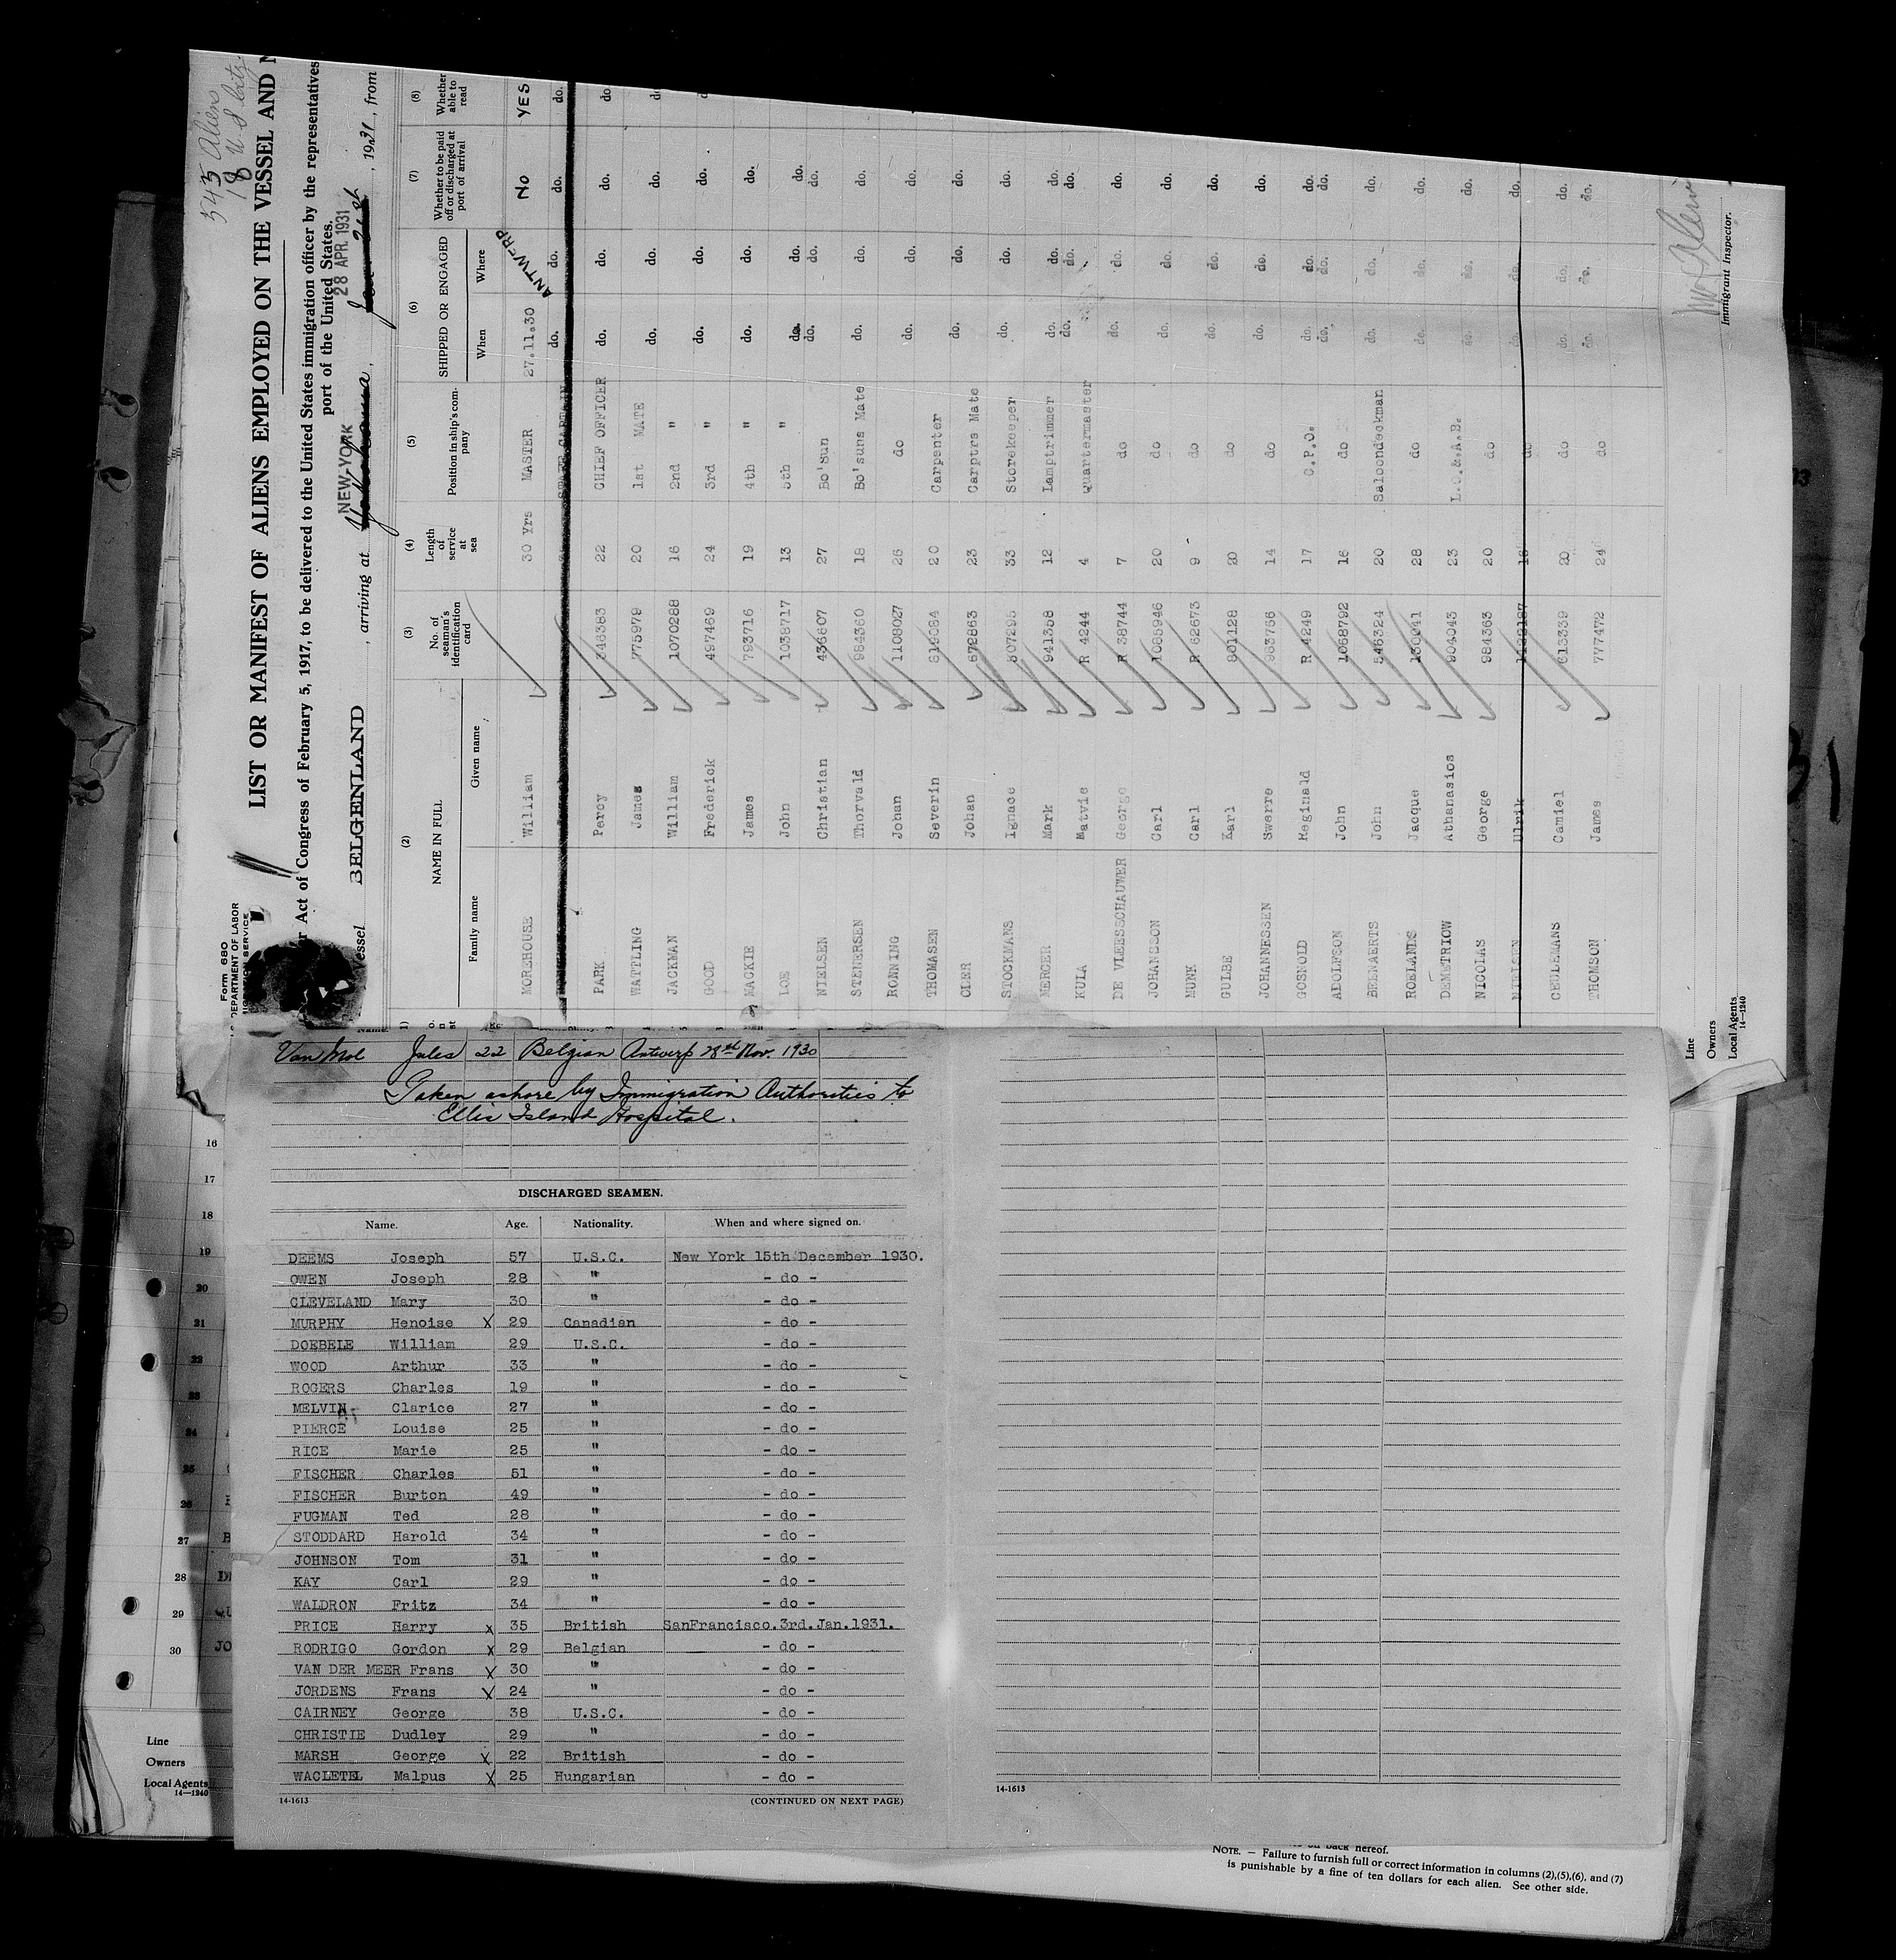 543 Aliens
18 U S Citz
Form 680
DEPARTMENT OF LABOR
LIST OR MANIFEST OF ALIENS EMPLOYED ON THE VESSEL AND
Act of Congress of February 5, 1917, to be delivered to the United States immigration officer by the representatives
port of the United States.
NEW-YORK 28 APR. 1931
Vessel BELGENLAND , arriving at Yokohama , , 1931, from
(2) (3) (4) (5) (6) (7) (8)
NAME IN FULL
Family name Given name
No. of seaman's identification card
Length of service at sea
Position in ship's company
SHIPPED OR ENGAGED
When Where
Whether to be paid off or discharged at port of arrival
Whether able to read
MOREHOUSE William 30 Yrs MASTER 27.11.30 ANTWERP No YES
STAFF CAPTAIN do. do. do. do.
PARK Percy 346383 22 CHIEF OFFICER do. do. do. do.
WATTLING James 775979 20 1st MATE do. do. do.
JACKMAN William 1070288 16 2nd " do. do. do.
GOOD Frederick 497469 24 3rd " do. do. do.
MACKIE James 793716 19 4th " do. do. do.
LOE John 1038717 13 5th " do. do. do.
NIELSEN Christian 436607 27 Bo'Sun do. do. do.
STENERSEN Thorvald 984360 18 Bo'suns Mate do. do. do.
RONNING Johan 1108027 26 do do. do. do.
THOMASEN Severin 819084 20 Carpenter do. do. do.
OLDER Johan 672863 23 Carptrs Mate do. do. do.
STOCKMANS Ignace 507295 33 Storekeeper do. do. do.
MERCER Mark 941358 12 Lamptrimmer do. do. do.
KULA Matvie R 4244 4 Quartermaster do. do. do.
DE VLEESSCHAUWER George R 38744 7 do do. do. do.
JOHANSSON Carl 1085946 20 do do. do. do.
MUNK Carl R 62673 9 do do. do. do.
GULBE Karl 801128 20 do do. do. do.
JOHANNESSEN Swerre 983756 14 do do. do. do.
GOSNOLD Reginald R 4249 17 C.P.O. do. do. do.
ADOLFSON John 1068792 16 do do. do. do.
BEENAERTS John 546324 20 Saloondeckman do. do. do.
ROELANDS Jacque 130041 28 do do. do. do.
DEMETRIOW Athanasios 904043 23 L.O.&.A.B. do. do. do.
NICOLAS George 984363 20 do do. do. do.
NIELSEN Ulrik 16 do do. do. do.
CEULEMANS Camiel 613339 20 do do. do. do.
THOMSON James 777472 24 do do. do. do.
Immigrant Inspector.
Line
Owners
Local Agents
14—1240
Van Mol Jules 22 Belgian Antwerp 28th Nov. 1930
Taken ashore by Immigration Authorities to
Ellis Island Hospital.
DISCHARGED SEAMEN.
Name. Age. Nationality. When and where signed on.
DEEMS Joseph 57 U.S.C. New York 15th December 1930.
OWEN Joseph 28 " - do -
CLEVELAND Mary 30 " - do -
MURPHY Henoise X 29 Canadian - do -
DOEBELE William 29 U.S.C. - do -
WOOD Arthur 33 " - do -
ROGERS Charles 19 " - do -
MELVIN Clarice 27 " - do -
PIERCE Louise 25 " - do -
RICE Marie 25 " - do -
FISCHER Charles 51 " - do -
FISCHER Burton 49 " - do -
FUGMAN Ted 28 " - do -
STODDARD Harold 34 " - do -
JOHNSON Tom 31 " - do -
KAY Carl 29 " - do -
WALDRON Fritz 34 " - do -
PRICE Harry x 35 British SanFrancisco.3rd.Jan.1931.
RODRIGO Gordon x 29 Belgian - do -
VAN DER MEER Frans X 30 " - do -
JORDENS Frans X 24 " - do -
CAIRNEY George 38 U.S.C. - do -
CHRISTIE Dudley 29 " - do -
MARSH George X 22 British - do -
WACLETEL Malpus X 25 Hungarian - do -
14-1613 (CONTINUED ON NEXT PAGE)
14-1613
16
17
18
19
20
21
22
23
24
25
26
27
28
29
30 JO
Line
Owners
Local Agents
14—1240
on back hereof.
NOTE. — Failure to furnish full or correct information in columns (2),(5),(6), and (7)
is punishable by a fine of ten dollars for each alien. See other side.